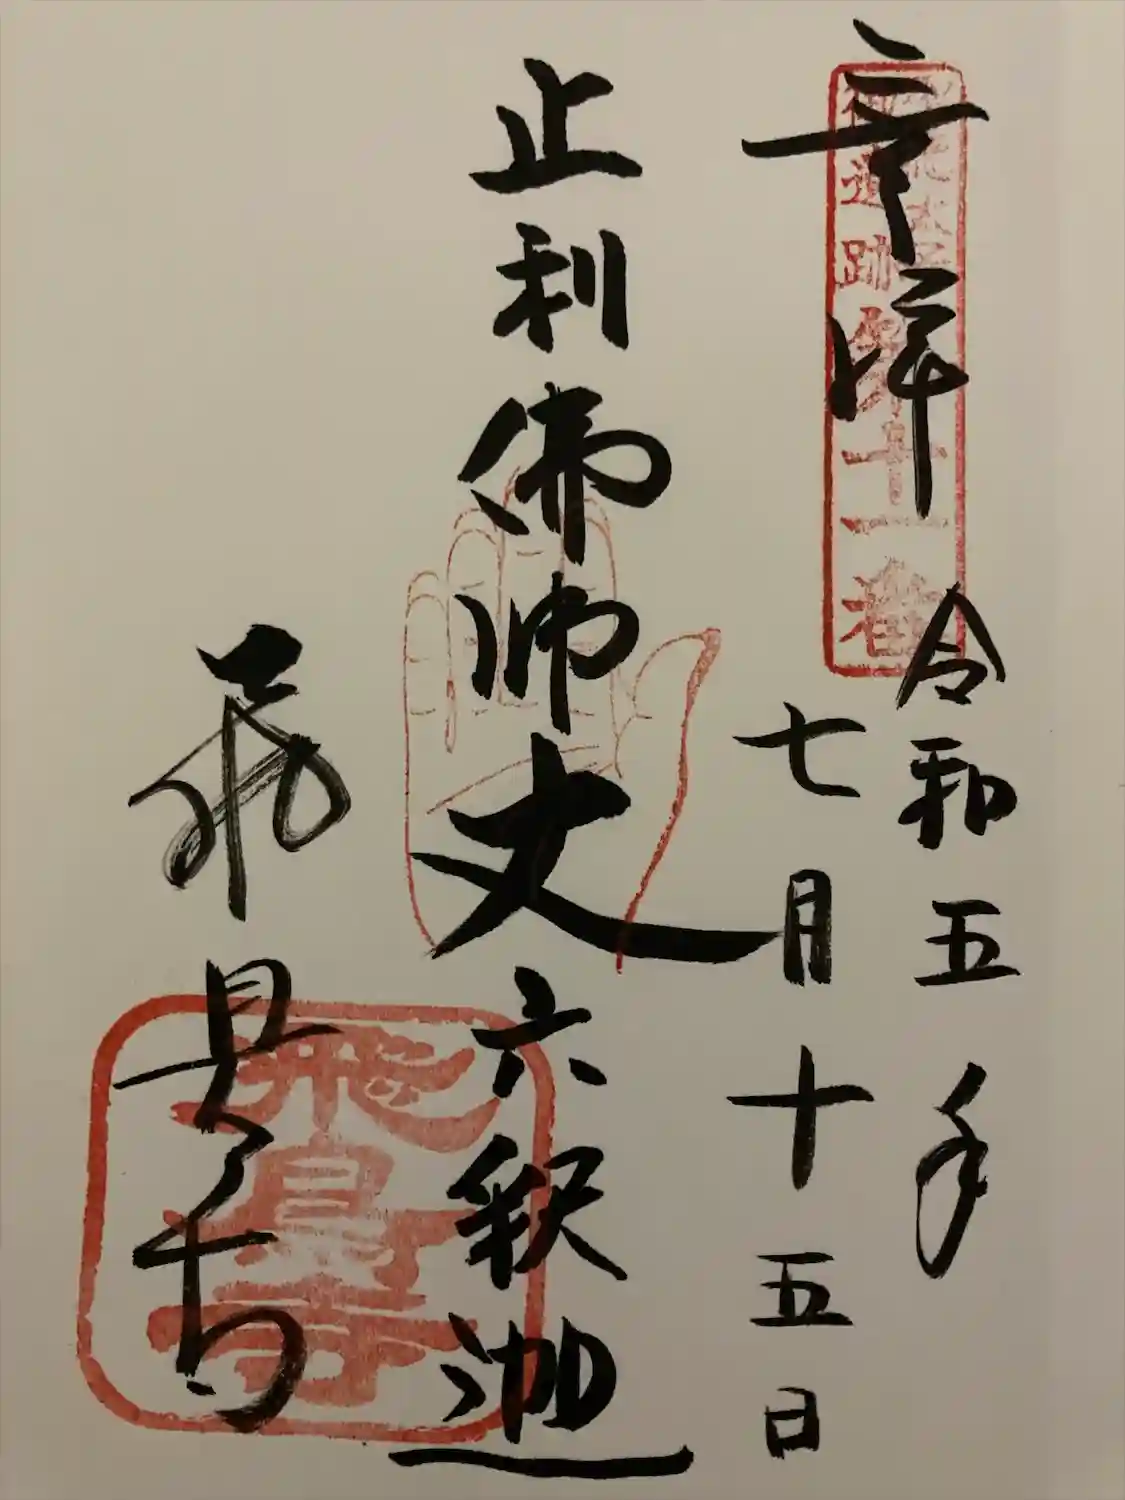 奉拝
令和五年
七月十五日
止利佛师丈六釈迦
飛鳥寺
聖徳太子
御遺跡第十一番
飛鳥寺